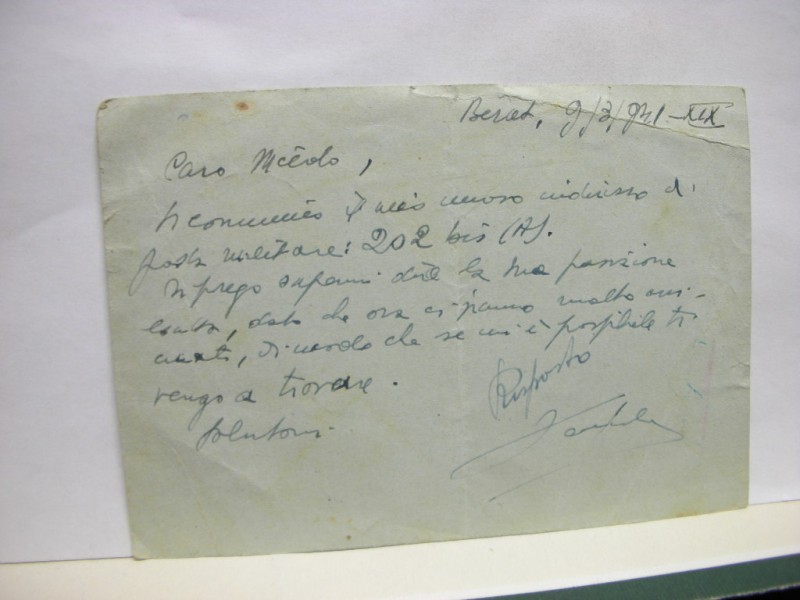 Berat, 9/3/941-XIX
Caro
Ti comunico il mio nuovo indirizzo di
posta militare: 202 bis (A).
Ti prego sapermi dire la tua posizione
esatta, dato che ora ci siamo molto avvi-
cinati, di modo che se mi è possibile ti
vengo a trovare.
Saluton
Risposto